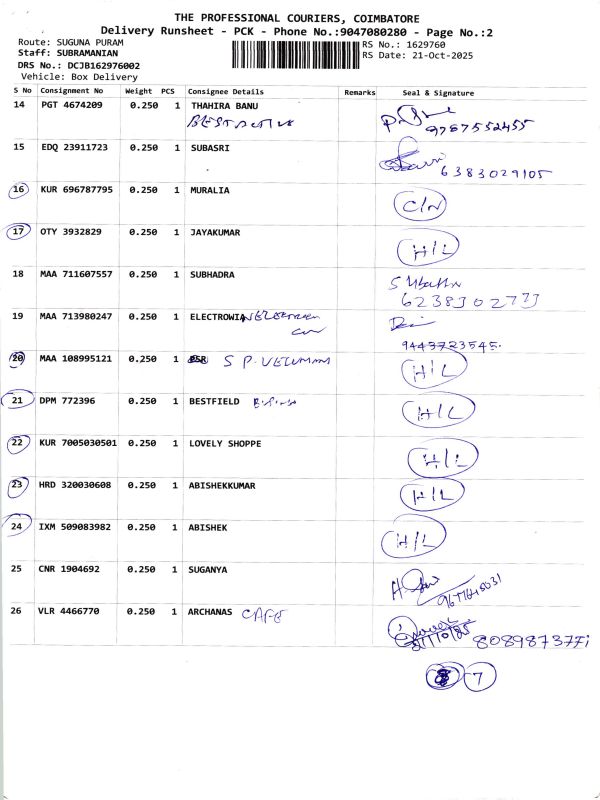 THE PROFESSIONAL COURIERS, COIMBATORE
Delivery Runsheet - PCK - Phone No.:9047080280 - Page No.:2
Route: SUGUNA PURAM RS No.: 1629760
Staff: SUBRAMANIAN RS Date: 21-Oct-2025
DRS No.: DCJB162976002
Vehicle: Box Delivery
S No Consignment No Weight PCS Consignee Details Remarks Seal & Signature
14 PGT 4674209 0.250 1 THAHIRA BANU
9787552455
15 EDQ 23911723 0.250 1 SUBASRI
6383029105
16 KUR 696787795 0.250 1 MURALIA C/N
17 OTY 3932829 0.250 1 JAYAKUMAR H/L
18 MAA 711607557 0.250 1 SUBHADRA
6238302773
19 MAA 713980247 0.250 1 ELECTROWIN
9443723545.
20 MAA 108995121 0.250 1 S P. H/L
21 DPM 772396 0.250 1 BESTFIELD H/L
22 KUR 7005030501 0.250 1 LOVELY SHOPPE H/L
23 HRD 320030608 0.250 1 ABISHEKKUMAR H/L
24 IXM 509083982 0.250 1 ABISHEK H/L
25 CNR 1904692 0.250 1 SUGANYA
26 VLR 4466770 0.250 1 ARCHANAS CAFE
21/10/25
7